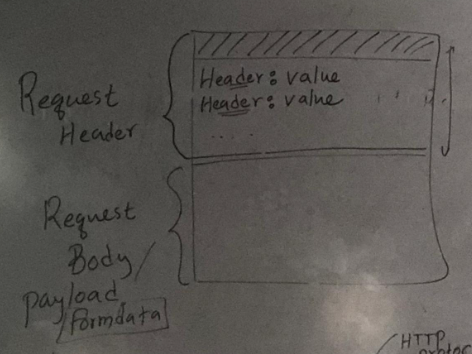 Request
Header
Header: value
Header: value
....
Request
Body/
payload
/Formdata
HTTP